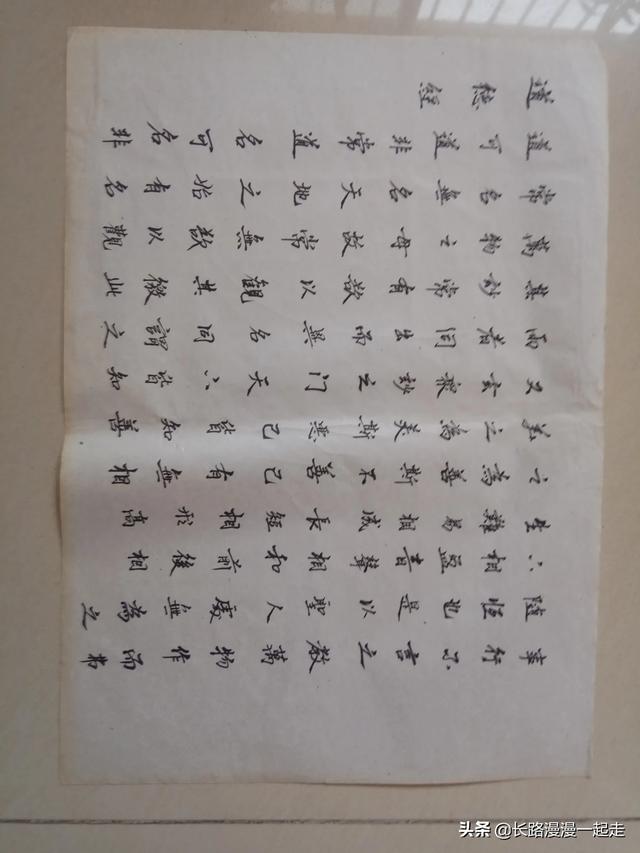 道德經
道可道非常道名可名非
常名無名天地之始有名
萬物之母故常無欲以觀
其妙常有欲以觀其徼此
两者同出而異名同謂之
又玄眾妙之门天下皆知
美之為美斯惡已皆知善
之為善斯不善已有無相
生難易相成長短相形高
下相盈音聲相和前後相
随恒也是以聖人處無為之
事行不言之教萬物作而弗
头条 @长路漫漫一起走